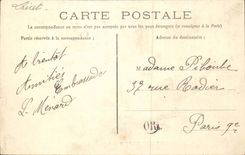 CARTE POSTALE
La correspondance au recto n'est pas acceptée par tous les pays étrangers (se renseigner à la Poste)
Partie réservée à la correspondance
Adresse du destinataire
A bientôt
Amitiés
Embrassade
L. Menard
Madame Piboule
37 rue Rodier
Paris 9e
OR